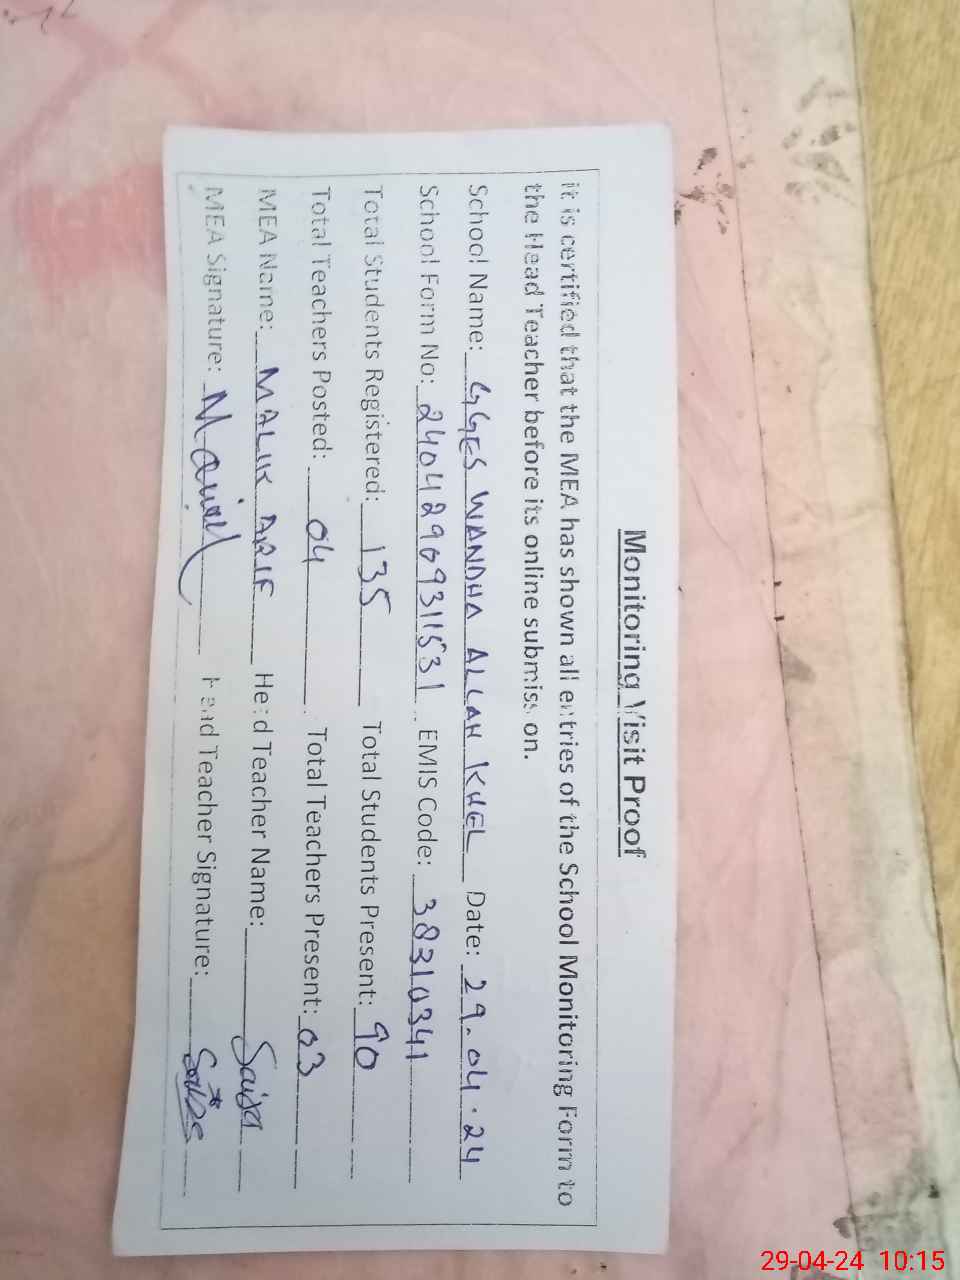 Monitoring Visit Proof
it is certified that the MEA has shown all entries of the School Monitoring Form to
the Head Teacher before its online submission.
School Name: GGES WANDHA ALLAH KHEL Date: 29.04.24
School Form No: 2404290931531 EMIS Code: 38310341
Total Students Registered: 135 Total Students Present: 90
Total Teachers Posted: 04 Total Teachers Present: 03
MEA Name: MALIK ARIF Head Teacher Name:
MEA Signature: Head Teacher Signature:
29-04-24 10:15